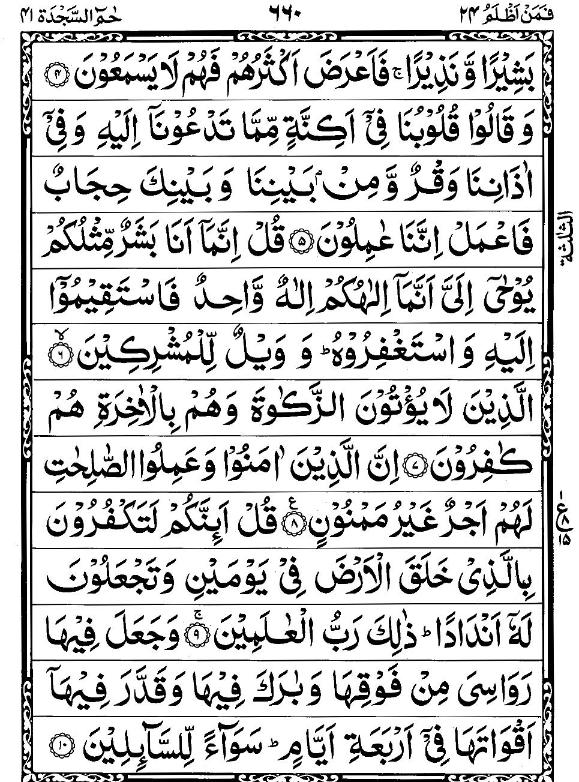 فَمَنْ اَظْلَمُ ٢٤ ٦٦٠ حٰمٓ السَّجْدَة ٤١
بَشِيْرًا وَّ نَذِيْرًا ۚ فَاَعْرَضَ اَكْثَرُهُمْ فَهُمْ لَا يَسْمَعُوْنَ ﴿٤﴾
وَ قَالُوْا قُلُوْبُنَا فِيْۤ اَكِنَّةٍ مِّمَّا تَدْعُوْنَاۤ اِلَيْهِ وَ فِيْۤ
اٰذَانِنَا وَقْرٌ وَّ مِنْۢ بَيْنِنَا وَ بَيْنِكَ حِجَابٌ
فَاعْمَلْ اِنَّنَا عٰمِلُوْنَ ﴿٥﴾ قُلْ اِنَّمَاۤ اَنَا بَشَرٌ مِّثْلُكُمْ
يُوْحٰۤى اِلَيَّ اَنَّمَاۤ اِلٰهُكُمْ اِلٰهٌ وَّاحِدٌ فَاسْتَقِيْمُوْۤا
اِلَيْهِ وَ اسْتَغْفِرُوْهُ ؕ وَ وَيْلٌ لِّلْمُشْرِكِيْنَ ۙ﴿٦﴾
الَّذِيْنَ لَا يُؤْتُوْنَ الزَّكٰوةَ وَ هُمْ بِالْاٰخِرَةِ هُمْ
كٰفِرُوْنَ ﴿٧﴾ اِنَّ الَّذِيْنَ اٰمَنُوْا وَ عَمِلُوا الصّٰلِحٰتِ
لَهُمْ اَجْرٌ غَيْرُ مَمْنُوْنٍ ﴿٨﴾ ع قُلْ اَئِنَّكُمْ لَتَكْفُرُوْنَ
بِالَّذِيْ خَلَقَ الْاَرْضَ فِيْ يَوْمَيْنِ وَ تَجْعَلُوْنَ
لَهٗۤ اَنْدَادًا ؕ ذٰلِكَ رَبُّ الْعٰلَمِيْنَ ۚ﴿٩﴾ وَ جَعَلَ فِيْهَا
رَوَاسِيَ مِنْ فَوْقِهَا وَ بٰرَكَ فِيْهَا وَ قَدَّرَ فِيْهَاۤ
اَقْوَاتَهَا فِيْۤ اَرْبَعَةِ اَيَّامٍ ؕ سَوَآءً لِّلسَّآئِلِيْنَ ﴿١٠﴾
الثلثة